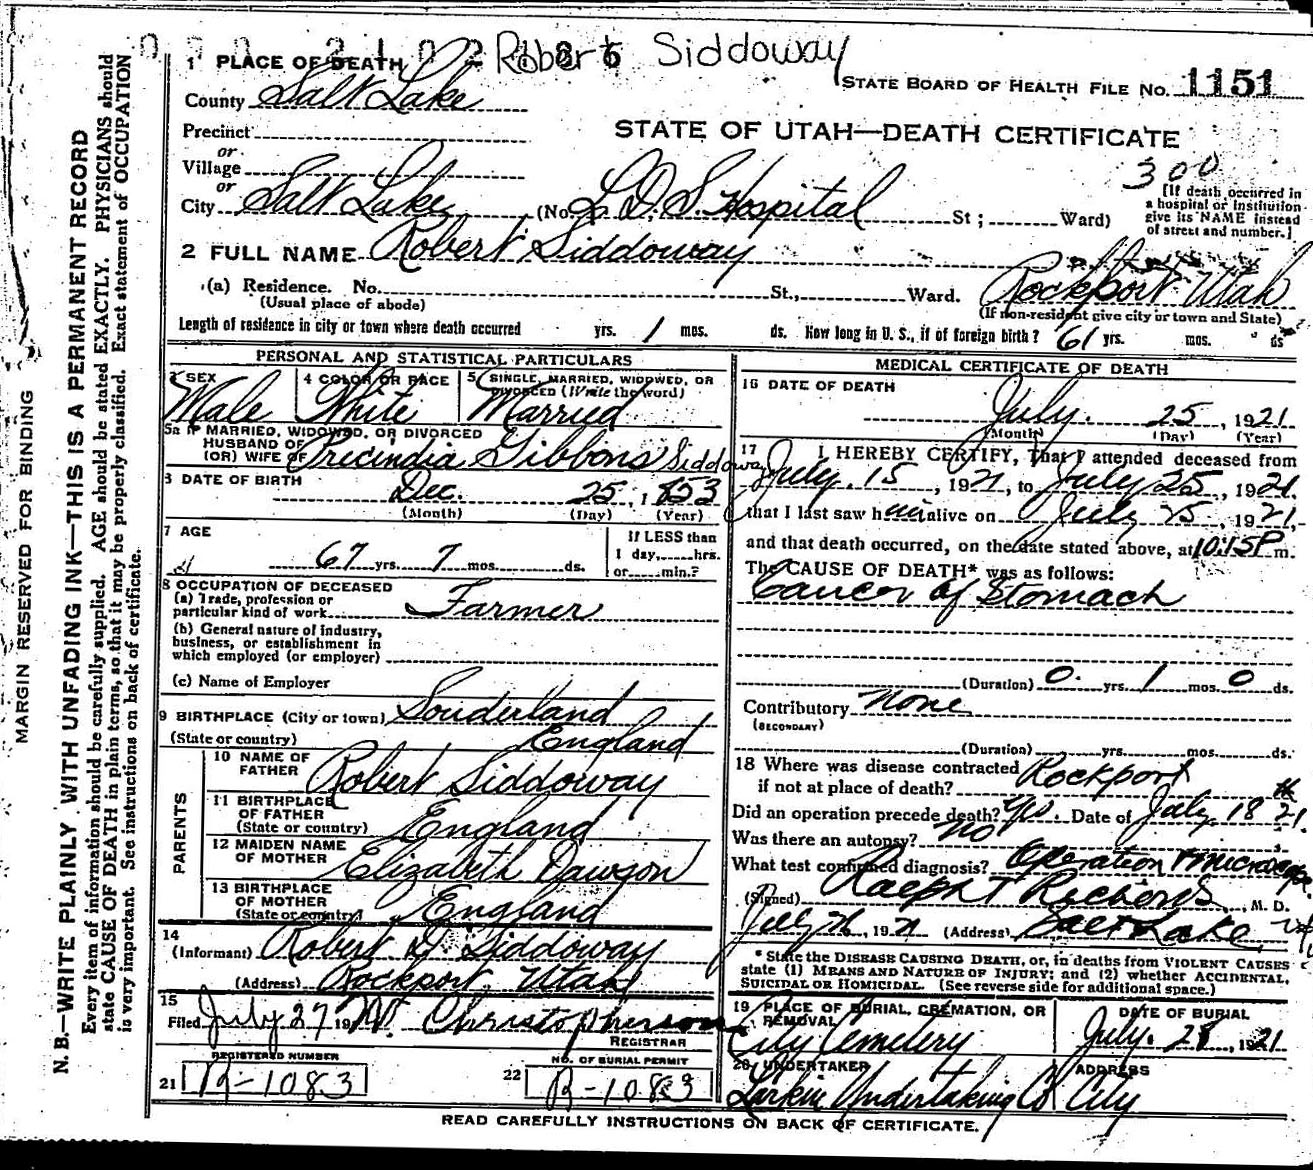 Robert Siddoway
1 PLACE OF DEATH
STATE BOARD OF HEALTH FILE No. 1151
County Salt Lake
STATE OF UTAH—DEATH CERTIFICATE
Precinct
or
Village
or
300
[If death occurred in
a hospital or institution
give its NAME instead
of street and number.]
City Salt Lake (No. L. D. S. Hospital St; Ward)
2 FULL NAME Robert Siddoway
(a) Residence. No. St., Ward. Rockport Utah
(Usual place of abode) (If non-resident give city or town and State)
Length of residence in city or town where death occurred yrs. 1 mos. ds. How long in U. S., if of foreign birth? 61 yrs. mos. ds
PERSONAL AND STATISTICAL PARTICULARS
3 SEX Male
4 COLOR OR RACE White
5 SINGLE, MARRIED, WIDOWED, OR
DIVORCED (Write the word)
Married
5a IF MARRIED, WIDOWED, OR DIVORCED
HUSBAND OF
(OR) WIFE OF Precindia Gibbons Siddoway
DATE OF BIRTH Dec. 25, 1853
(Month) (Day) (Year)
7 AGE
67 yrs. 7 mos. ds.
If LESS than
1 day, hrs.
or min.?
8 OCCUPATION OF DECEASED
(a) Trade, profession or
particular kind of work Farmer
(b) General nature of industry,
business, or establishment in
which employed (or employer)
(c) Name of Employer
9 BIRTHPLACE (City or town) Souderland
(State or country) England
PARENTS
10 NAME OF
FATHER Robert Siddoway
11 BIRTHPLACE
OF FATHER
(State or country) England
12 MAIDEN NAME
OF MOTHER Elizabeth Dawson
13 BIRTHPLACE
OF MOTHER
(State or country) England
14
(Informant) Robert D. Siddoway
(Address) Rockport, Utah
15
Filed July 27 19 Christopherson
REGISTRAR
REGISTERED NUMBER
21 R-1083
NO. OF BURIAL PERMIT
22 B-1083
MEDICAL CERTIFICATE OF DEATH
16 DATE OF DEATH
July. 25, 1921
(Month) (Day) (Year)
17 I HEREBY CERTIFY, That I attended deceased from
July. 15, 1921, to July 25, 1921.
that I last saw him alive on July 25, 1921
and that death occurred, on the date stated above, at 10:15P m.
The CAUSE OF DEATH* was as follows:
Cancer of Stomach
(Duration) 0 yrs. 1 mos. 0 ds.
Contributory None
(SECONDARY)
(Duration) yrs. mos. ds.
18 Where was disease contracted
if not at place of death? Rockport
Did an operation precede death? Yes. Date of July 18 th 21.
Was there an autopsy? No
What test confirmed diagnosis? Operation
(Signed) Ralph T Richards, M. D.
July 26, 1921 (Address) Salt Lake
* State the DISEASE CAUSING DEATH, or, in deaths from VIOLENT CAUSES
state (1) MEANS AND NATURE OF INJURY; and (2) whether ACCIDENTAL,
SUICIDAL OR HOMICIDAL. (See reverse side for additional space.)
19 PLACE OF BURIAL, CREMATION, OR
REMOVAL
City Cemetery
DATE OF BURIAL
July. 28, 1921
20 UNDERTAKER
Larkin Undertaking Co
ADDRESS
City
READ CAREFULLY INSTRUCTIONS ON BACK OF CERTIFICATE.
MARGIN RESERVED FOR BINDING
N. B.—WRITE PLAINLY, WITH UNFADING INK—THIS IS A PERMANENT RECORD
Every item of information should be carefully supplied. AGE should be stated EXACTLY. PHYSICIANS should
state CAUSE OF DEATH in plain terms, so that it may be properly classified. Exact statement of OCCUPATION
is very important. See instructions on back of certificate.